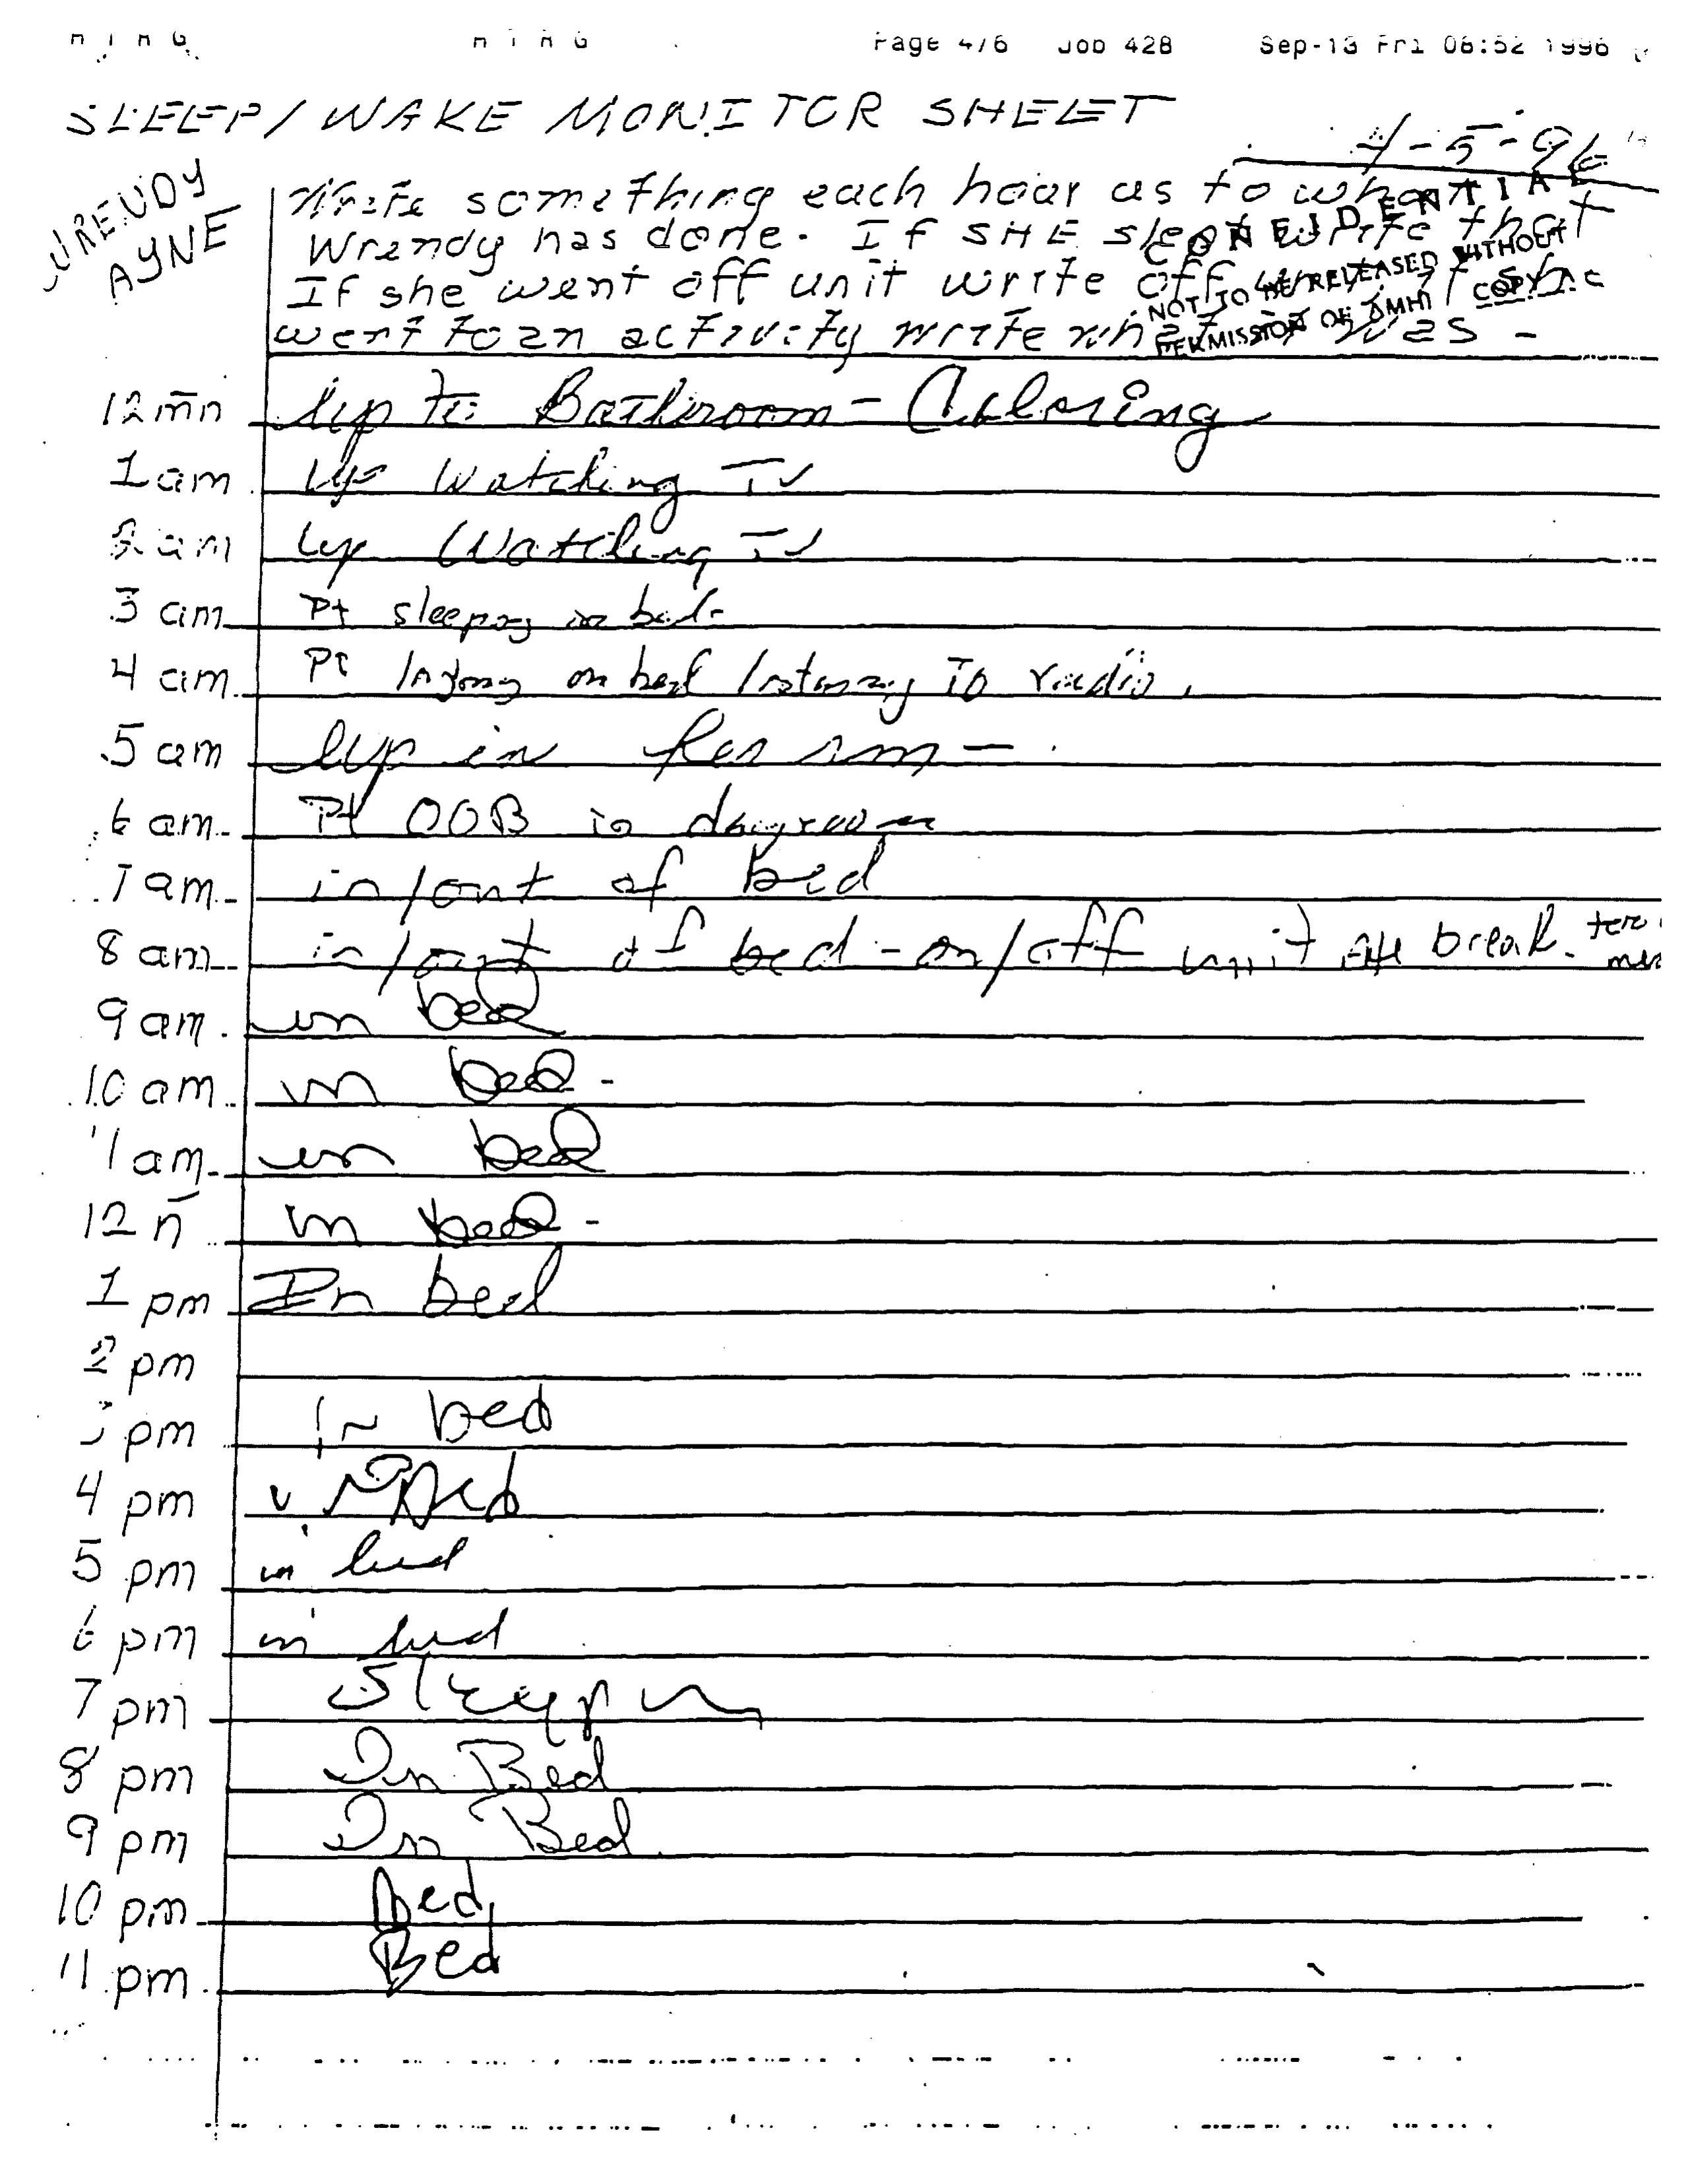 Page 4/6 Job 428 Sep-13 Fri 08:52 1996
SLEEP/WAKE MONITOR SHEET
4-5-96
WRENDY
AYNE
Write something each hour as to what
Wrendy has done. If SHE slept write that
If she went off unit write off unit, if she
went to an activity write what it was -
CONFIDENTIAL
NOT TO BE RELEASED WITHOUT
PERMISSION OF AMHI COPY
12 mn Up to Bathroom - Coloring
1 am Up Watching TV
2 am Up Watching TV
3 am Pt sleeping in bed.
4 am Pt laying on bed listening to radio.
5 am Up in her rm -
6 am Pt OOB in dayroom
7 am in/out of bed
8 am in/out of bed - on/off unit ate break.
9 am in bed
10 am in bed -
11 am in bed
12 n in bed -
1 pm In bed
2 pm
3 pm In bed
4 pm in Bed
5 pm in bed
6 pm in bed
7 pm Sleepin
8 pm In Bed
9 pm In Bed
10 pm Bed
11 pm Bed